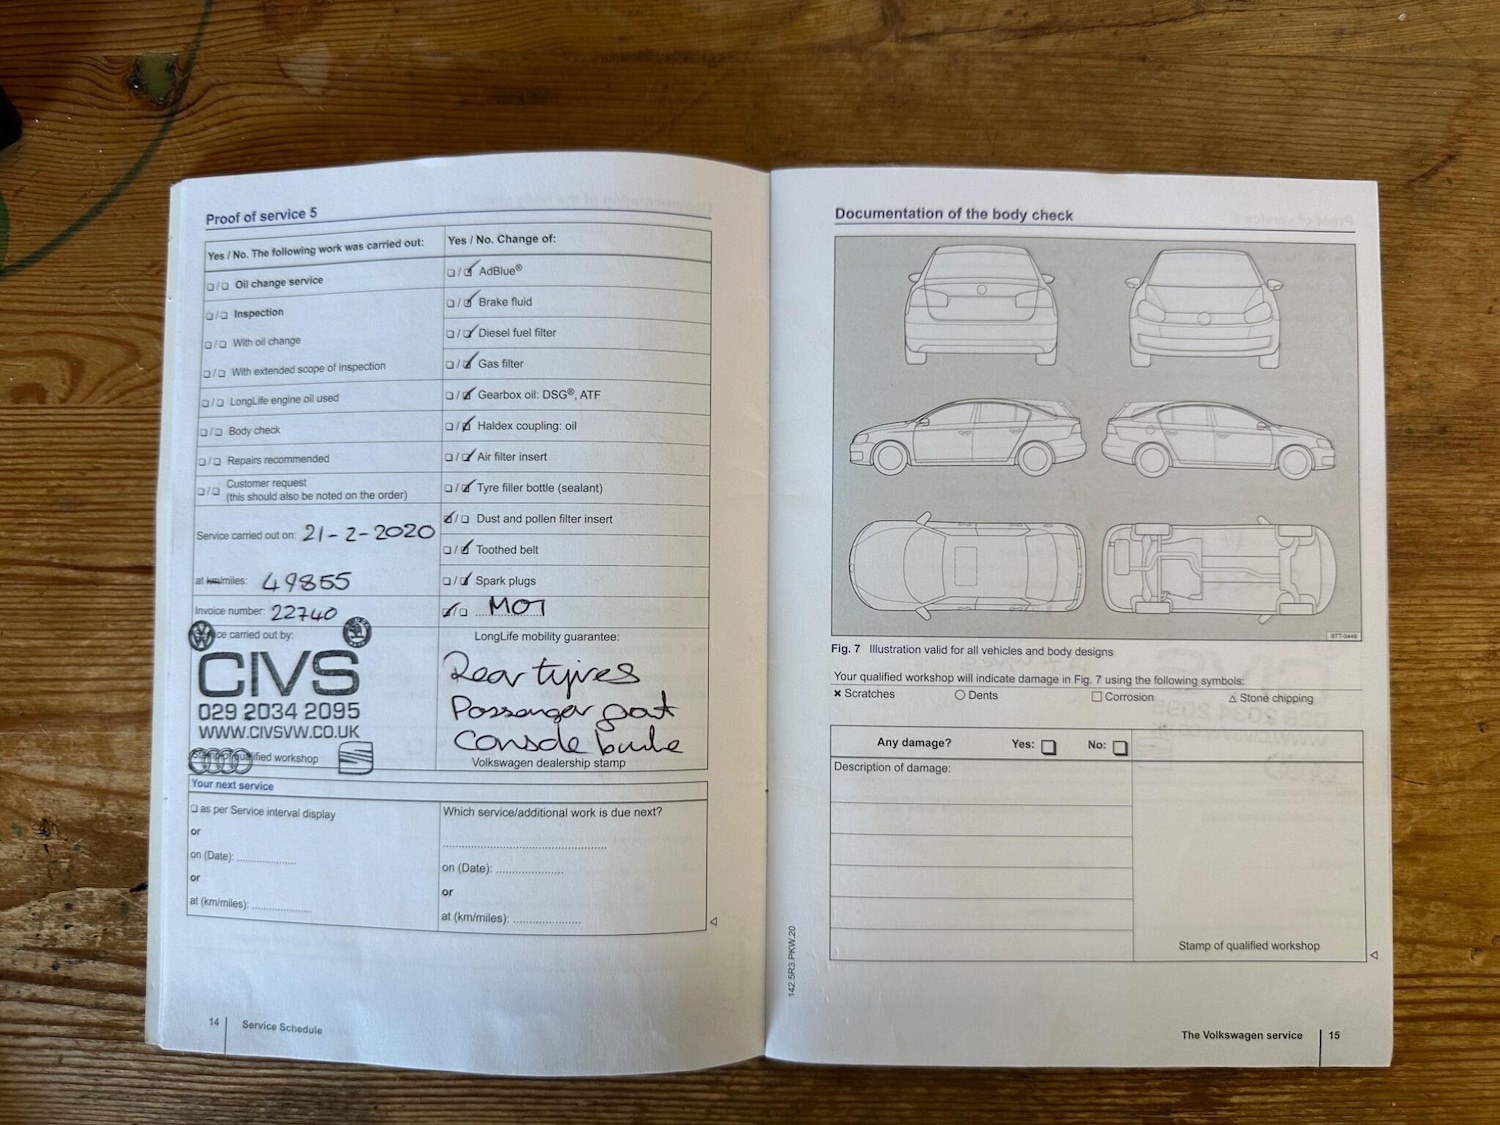 Proof of service 5
Yes / No. The following work was carried out:
Yes / No. Change of:
❏/❏ Oil change service
❏/❏ Inspection
❏/❏ With oil change
❏/❏ With extended scope of inspection
❏/❏ LongLife engine oil used
❏/❏ Body check
❏/❏ Repairs recommended
❏/❏ Customer request
(this should also be noted on the order)
❏/☑ AdBlue®
❏/☑ Brake fluid
❏/☑ Diesel fuel filter
❏/☑ Gas filter
❏/☑ Gearbox oil: DSG®, ATF
❏/☑ Haldex coupling: oil
❏/☑ Air filter insert
❏/☑ Tyre filler bottle (sealant)
☑/❏ Dust and pollen filter insert
❏/☑ Toothed belt
❏/☑ Spark plugs
☑/❏ MOT
Service carried out on: 21-2-2020
at km/miles: 49855
Invoice number: 22740
ce carried out by:
CIVS
029 2034 2095
WWW.CIVSVW.CO.UK
Stamp of qualified workshop
LongLife mobility guarantee:
Rear tyres
Passanger
Console
Volkswagen dealership stamp
Your next service
❏ as per Service interval display
or
on (Date): ....................
or
at (km/miles): ....................
Which service/additional work is due next?
on (Date): ....................
or
at (km/miles): ....................
14 Service Schedule
Documentation of the body check
BTT-0449
Fig. 7 Illustration valid for all vehicles and body designs
Your qualified workshop will indicate damage in Fig. 7 using the following symbols:
× Scratches ○ Dents □ Corrosion △ Stone chipping
Any damage? Yes: ❏ No: ❏
Description of damage:
Stamp of qualified workshop
142.5R3.PKW.20
The Volkswagen service 15